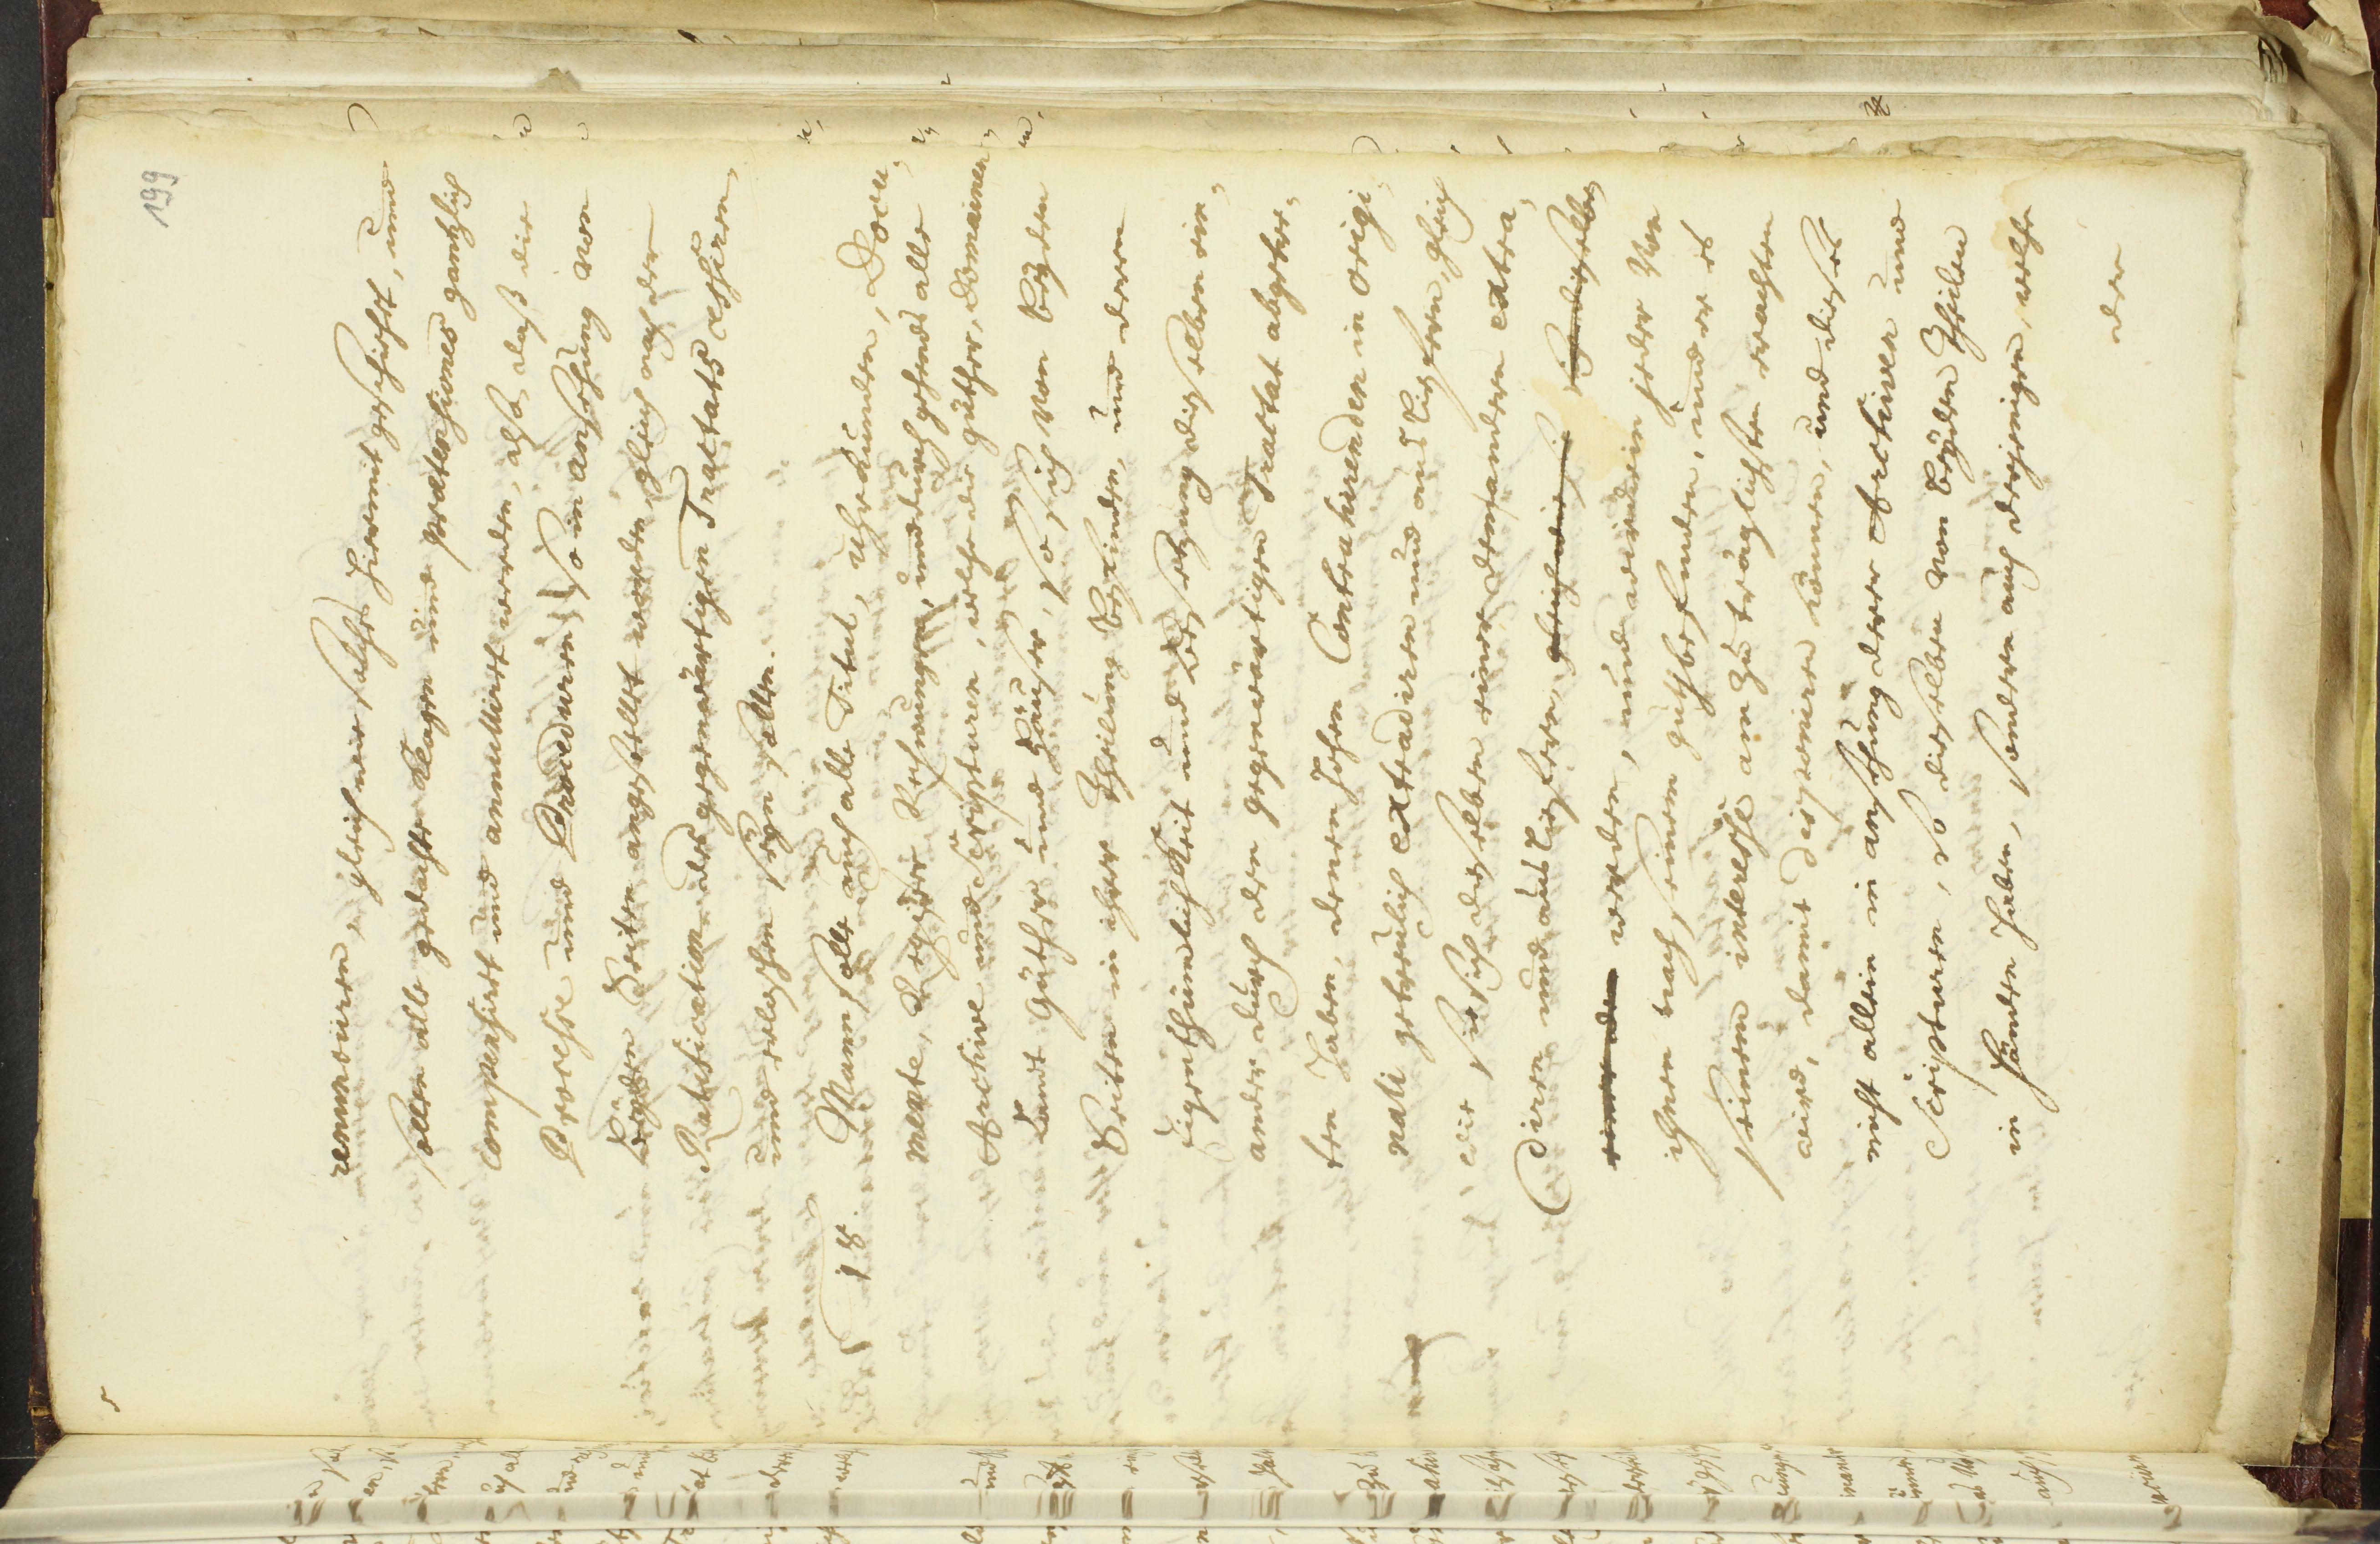 199
renunciiren, gleich wie solches hiermit geschicht, und
sollen alle gedachte Klagen und praetensiones gäntzlich
compensirt und annullirt werden, also, daß die
Processe und Proceduren, so in ansehung von
beyden Seiten angestellet worden, gleich nach der
Ratification des gegenwärtigen Tractats cessiren,
und erloschen seyn sollen.
§ 18. Wann solle auch alle Titul, Uhrkunden, Docu„
mente, Register Rechnungen, und durchgehends alle
Archive und Scripturen, welche die güther, Domainen,
Landt Güther und Häuser, so sich von beyden
Seiten in ihrer Theilung befinden, und deren
Eigenthümlichkeit und Besitzung dieselben ein„
ander durch den gegenwärtigen Tractat abgetre„
ten haben, denen Hohen Contrahirenden in origi„
nali getreulich extradiren und ausliefern, gleich
wie sie sich dieselben einer dem anderen extra„
diren und ausliefern, gleich wie sie dieselbe
einer dem werden, und wird ein jeder von
ihnen nach seinem gutbefinden, und er es
seinem interesse am zuträglichsten erachten
wird, damit disponiren können, und dieses
nicht allein in ansehung derer Archiven und
Scripturen, so dieselben von beyden Theilen
in Händen haben, sondern auch derjenigen, welche
der